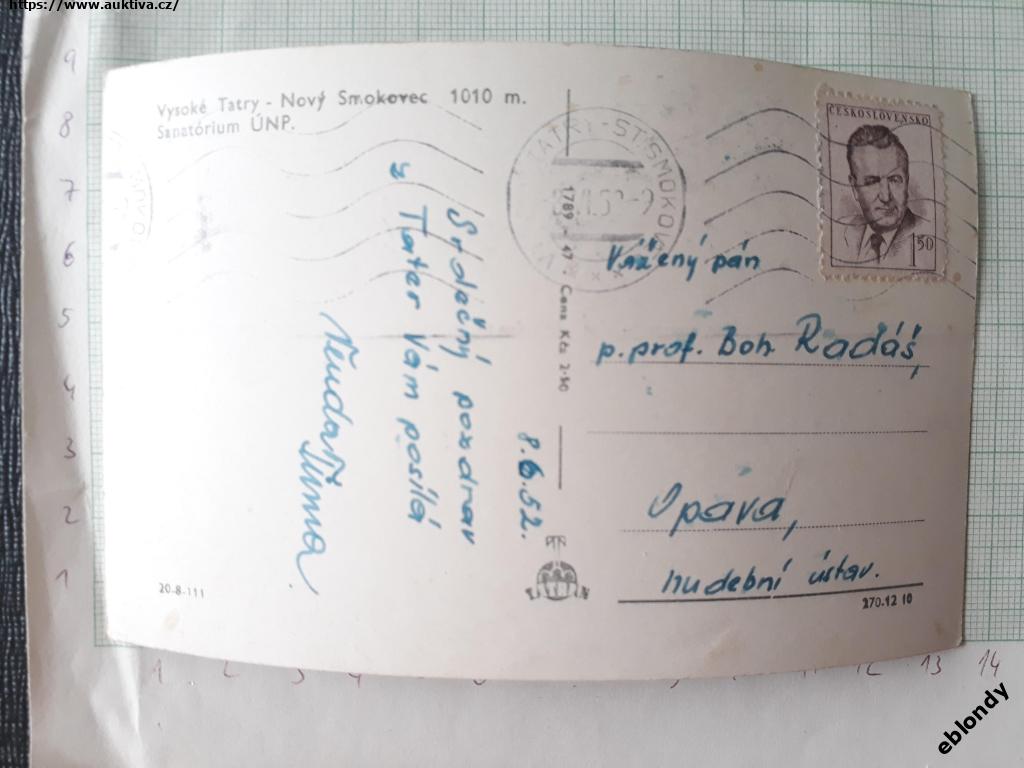 https://www.auktiva.cz/
Vysoké Tatry - Nový Smokovec 1010 m.
Sanatórium ÚNP.
Srdečný pozdrav
z Tater Vám posílá
8.6.52.
1789 - 47 - Cena Kčs 2·50
TATRY-ST. SMOKOV
ČESKOSLOVENSKO
1 50
Vážený pán
p. prof. Boh. Radáš,
Opava,
hudební ústav.
20-8-111
270.12 10
9
8
7
6
5
4
3
2
1
1 2 3 4 12 13 14
eblondy